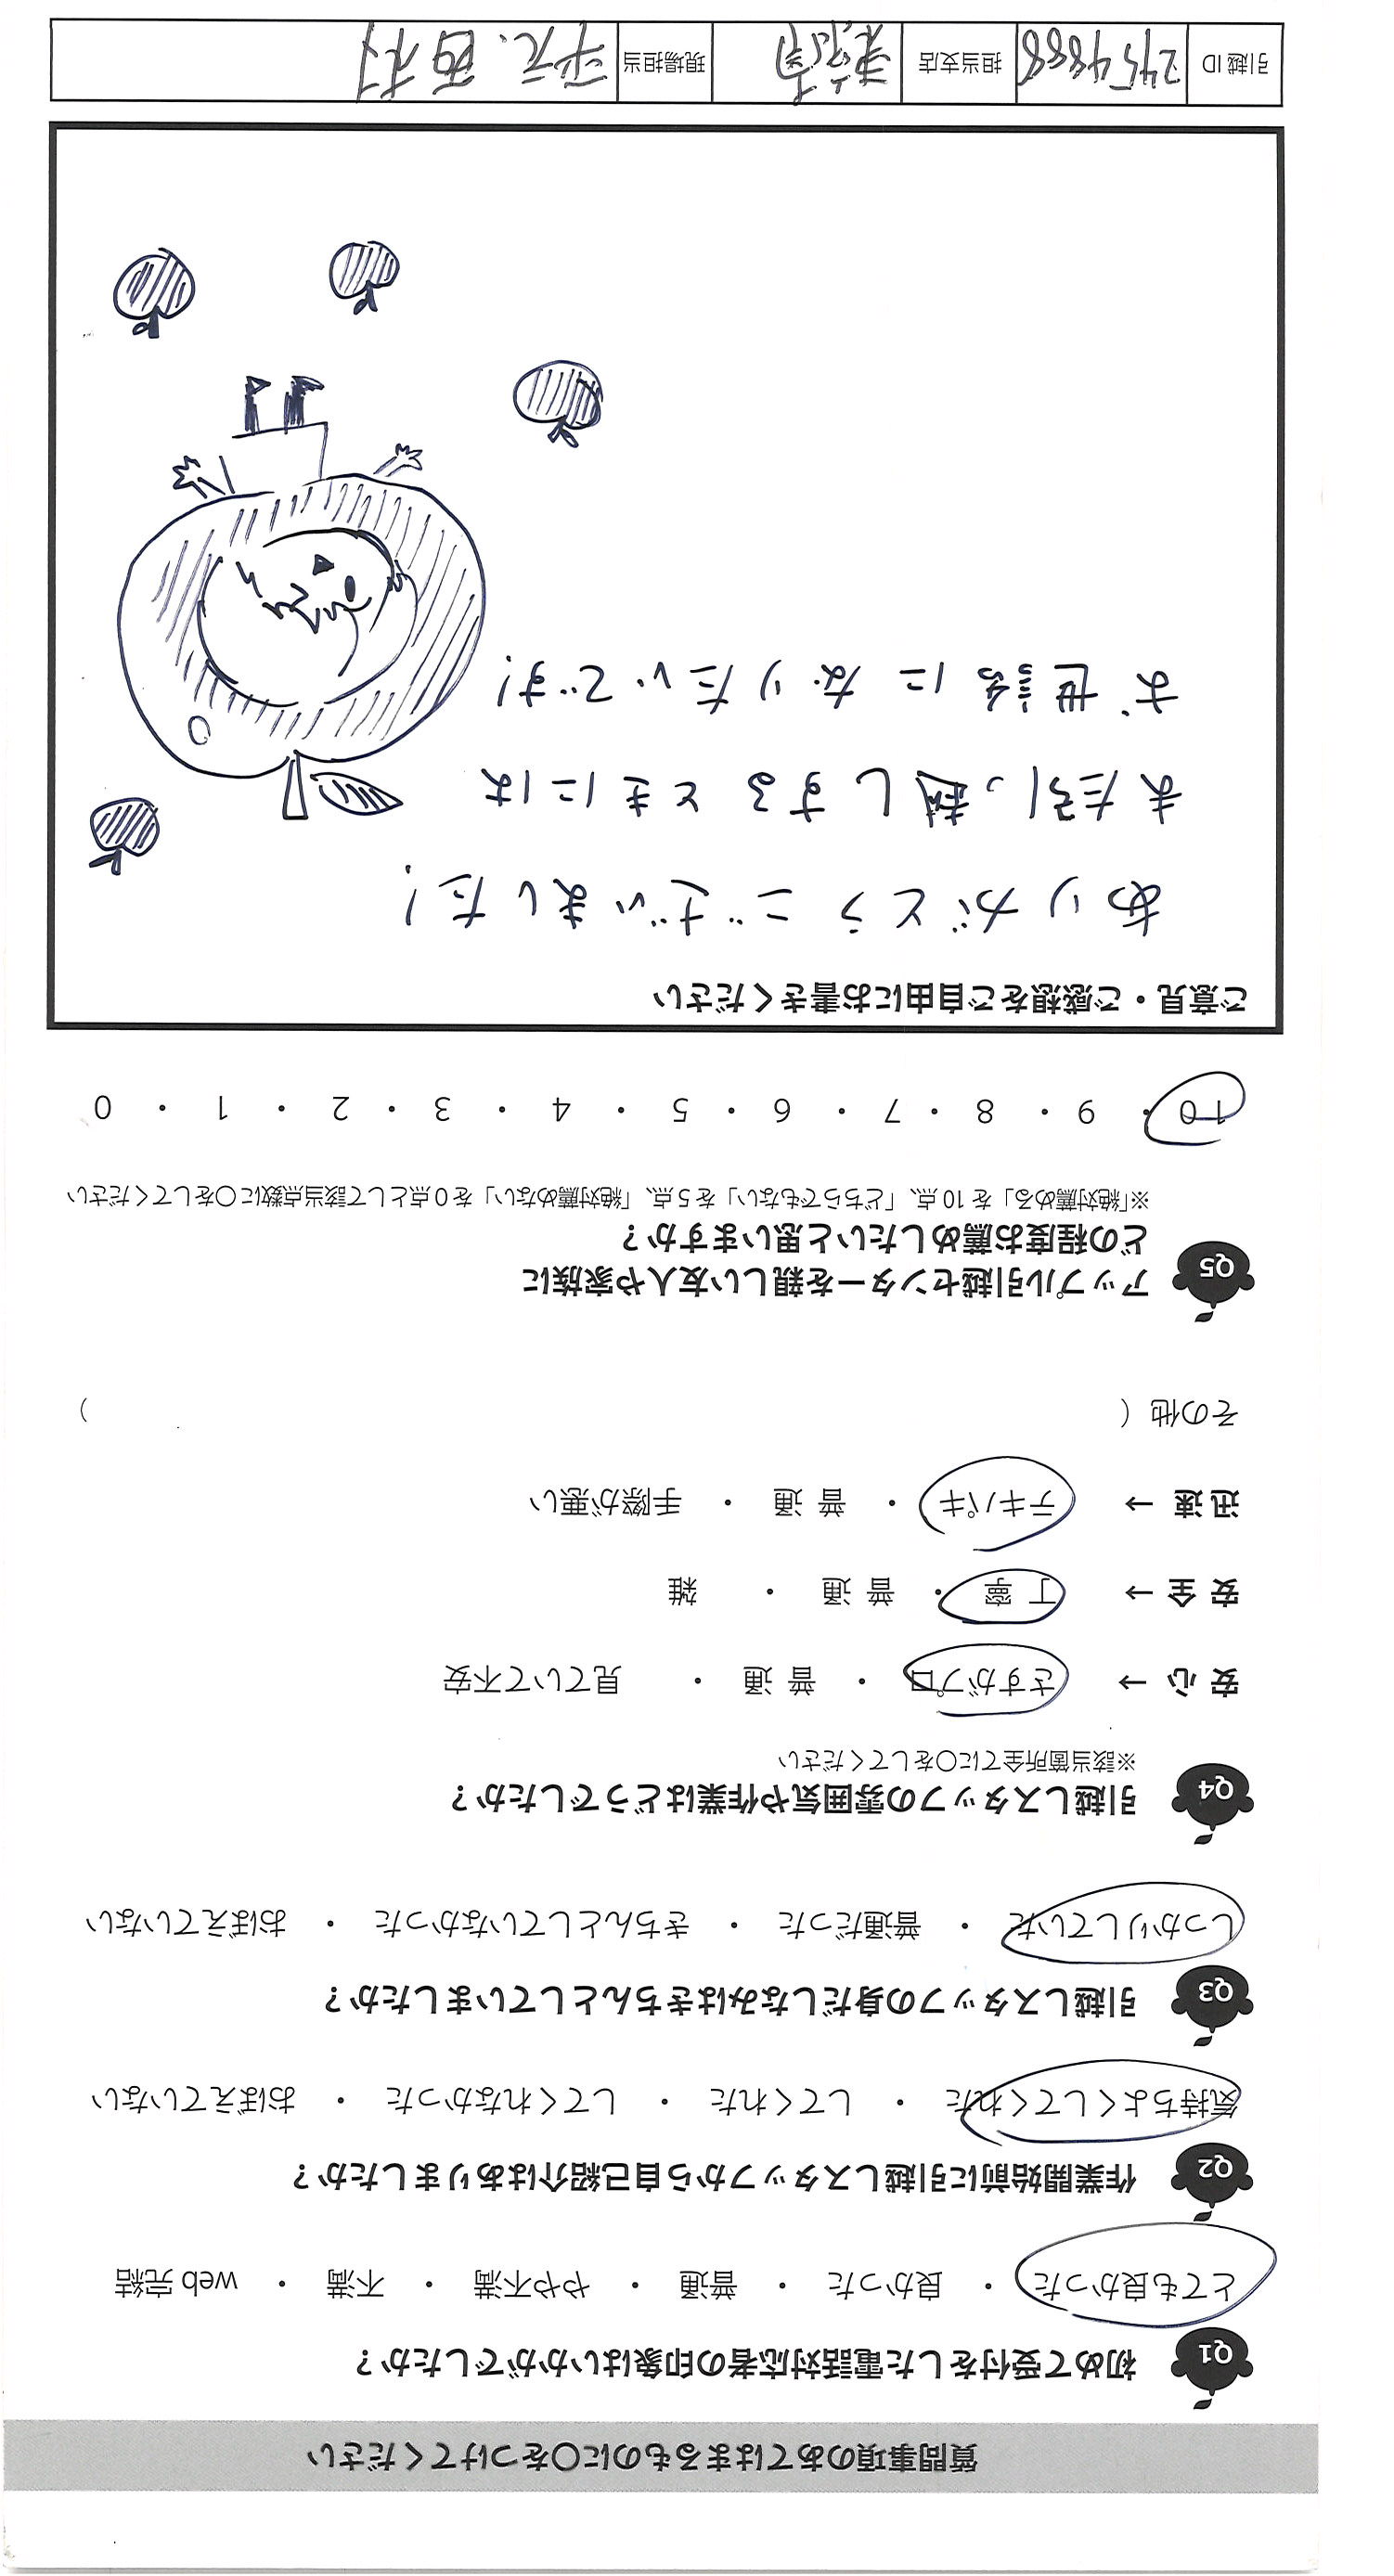 質問事項のあてはまるものに○をつけてください
Q1 初めて受付をした電話対応者の印象はいかがでしたか？
とても良かった ・ 良かった ・ 普通 ・ やや不満 ・ 不満 ・ web 完結
Q2 作業開始前に引越しスタッフから自己紹介はありましたか？
気持ちよくしてくれた ・ してくれた ・ してくれなかった ・ おぼえていない
Q3 引越しスタッフの身だしなみはきちんとしていましたか？
しっかりしていた ・ 普通だった ・ きちんとしていなかった ・ おぼえていない
Q4 引越しスタッフの雰囲気や作業はどうでしたか？
※該当箇所全てに○をしてください
安 心 → さすがプロ ・ 普 通 ・ 見ていて不安
安 全 → 丁 寧 ・ 普 通 ・ 雑
迅 速 → テキパキ ・ 普 通 ・ 手際が悪い
その他（ ）
Q5 アップル引越センターを親しい友人や家族に
どの程度お薦めしたいと思いますか？
※「絶対薦める」を 10 点、「どちらでもない」を 5 点、「絶対薦めない」を 0 点として該当点数に○をしてください
10 ・ 9 ・ 8 ・ 7 ・ 6 ・ 5 ・ 4 ・ 3 ・ 2 ・ 1 ・ 0
ご意見・ご感想をご自由にお書きください
ありがとうございました！
また引っ越しするときには
お世話になりたいです！
引越 ID 2454888 担当支店 現場担当